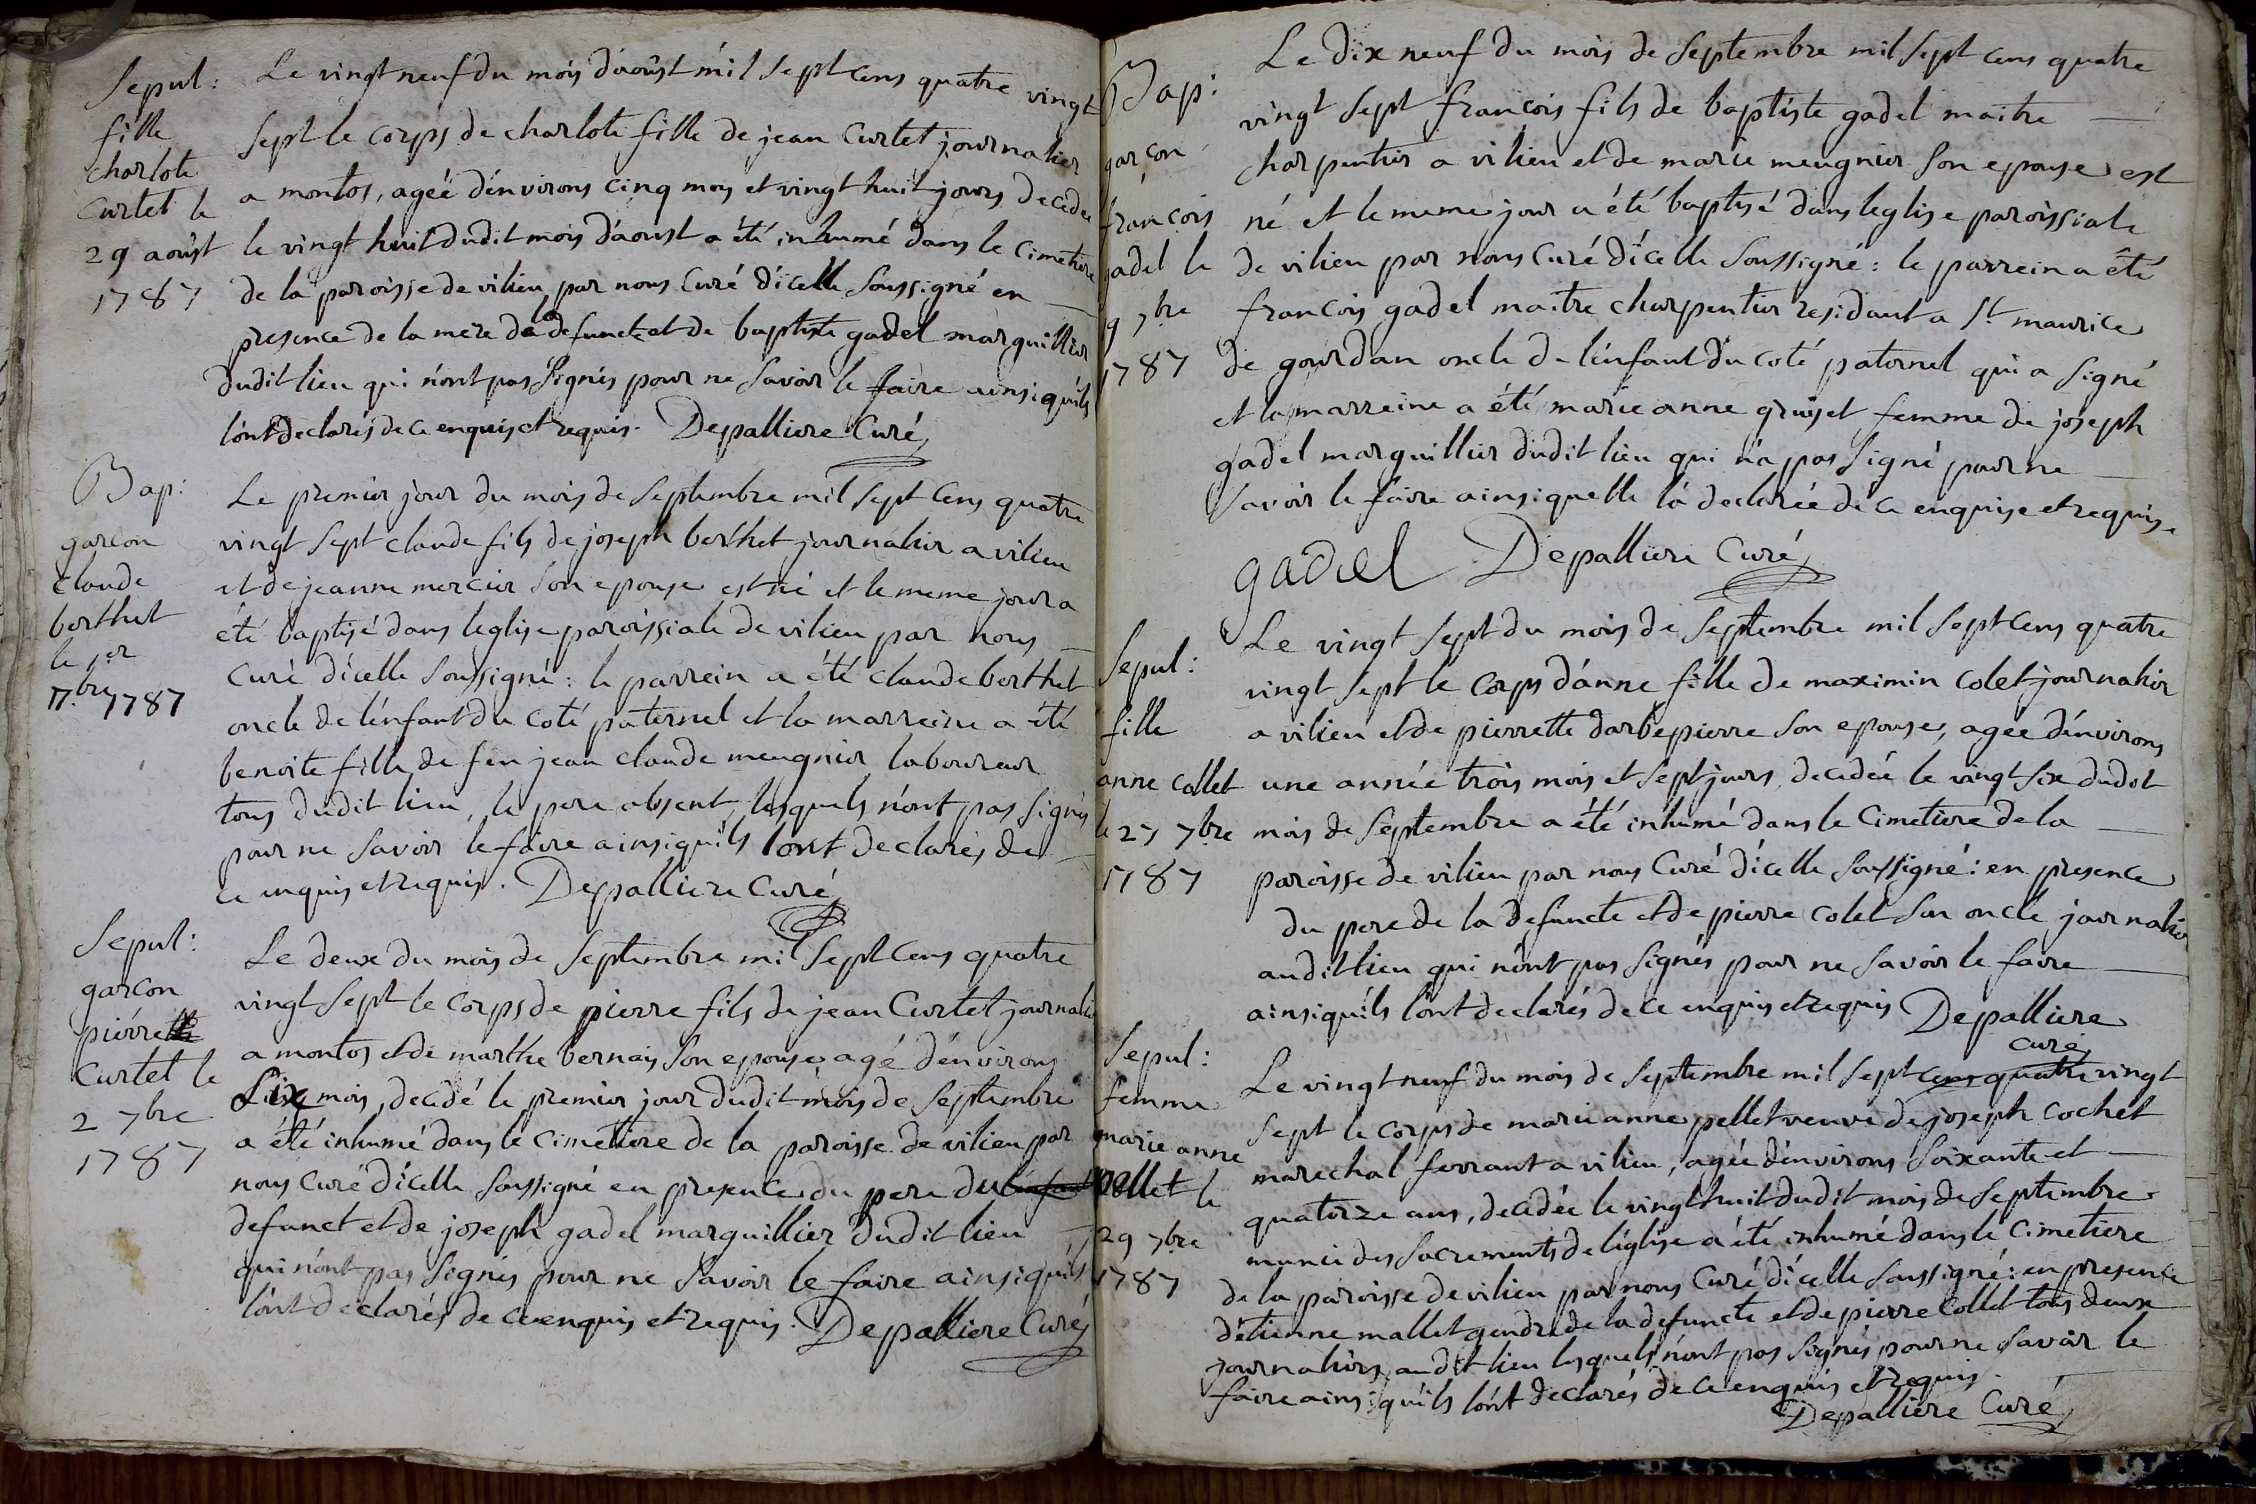 Sepul:
fille
charlote
Curtet le
29 aoûst
1787
Le vingt neuf du mois d'aoûst mil sept cens quatre vingt
sept le corps de charlote fille de jean Curtet journalier
a montos, ageé d'environs cinq moy et vingt huit jours, decedeé
le vingt huit dudit mois d'aoust a été inhumé dans le cimetiere
de la paroisse de vilieu par nous Curé d'icelle soussigné en
presence de la mere de la defuncte et de baptiste gadel marguillier
dudit lieu qui n'ont pas signés pour ne savoir le faire ainsi qu'ils
l'ont declarés de ce enquis et requis. Depalliere Curé
Bap:
garcon
claude
berthet
le 1er
7.bre 1787
Le premier jour du mois de septembre mil sept cens quatre
vingt sept claude fils de joseph berthet journalier a vilieu
et de jeanne mercier son epouse est né et le meme jour a
été baptisé dans leglise paroissiale de vilieu par nous
Curé d'icelle soussigné: le parrein a été claude berthet
oncle de l'enfant du coté paternel et la marreine a été
benoite fille de feu jean claude meugnier laboureur
tous dudit lieu, le pere absent, lesquels n'ont pas signés
pour ne savoir le faire ainsi qu'ils l'ont declarés de
ce enquis et requis. Depalliere Curé
Sepul:
garcon
pierre
Curtet le
2 7bre
1787
Le deux du mois de septembre mil sept cens quatre
vingt sept le corps de pierre fils de jean Curtet journalier
a montos et de marthe bernais son epouse agé d'environs
six mois, decedé le premier jour dudit mois de septembre
a été inhumé dans le cimetiere de la paroisse de vilieu par
nous Curé d'icelle soussigné en presence du pere du l'enfant
defunct et de joseph gadel marguillier dudit lieu
qui n'ont pas signés pour ne savoir le faire ainsi qu'ils
l'ont declarés de ce enquis et requis. Depalliere Curé
Bap:
garcon
francois
gadel le
19 7bre
1787
Le dix neuf du mois de septembre mil sept cens quatre
vingt sept francois fils de baptiste gadel maitre
charpentier a vilieu et de marie meugnier son epouse est
né et le meme jour a été baptisé dans leglise paroissiale
de vilieu par nous Curé d'icelle soussigné: le parrein a été
francois gadel maitre charpentier residant a St. maurice
de gourdan oncle de l'enfant du coté paternel qui a signé
et la marreine a été marie anne gruiset femme de joseph
gadel marguillier dudit lieu qui n'a pas signé pour ne
savoir le faire ainsi quelle l'a declarée de ce enquise et requise
gadel Depalliere Curé
Sepul:
fille
anne collet
le 27 7bre
1787
Le vingt sept du mois de septembre mil sept cens quatre
vingt sept le corps d'anne fille de maximin colet journalier
a vilieu et de pierrette darbepierre son epouse, ageé d'environs
une année trois mois et sept jours, decedeé le vingt six dudit
mois de septembre a été inhumé dans le cimetiere de la
paroisse de vilieu par nous Curé d'icelle soussigné: en presence
du pere de la defuncte et de pierre colet son oncle journalier
audit lieu qui n'ont pas signés pour ne savoir le faire
ainsi qu'ils l'ont declarés de ce enquis et requis Depalliere
curé
Sepul:
femme
marie anne
pellet le
29 7bre
1787
Le vingt neuf du mois de septembre mil sept cens quatre vingt
sept le corps de marie anne pellet veuve de joseph cochet
marechal ferrant a vilieu, ageé d'environs soixante et
quatorze ans, decedeé le vingt huit dudit mois de septembre
munei des sacrements de l'église a été inhumé dans le cimetiere
de la paroisse de vilieu par nous Curé d'icelle soussigné: en presence
d'etienne mallet gendre de la defuncte et de pierre collet tous deux
journaliers audit lieu lesquels n'ont pas signés pour ne savoir le
faire ainsi qu'ils l'ont declarés de ce enquis et requis.
Depalliere Curé